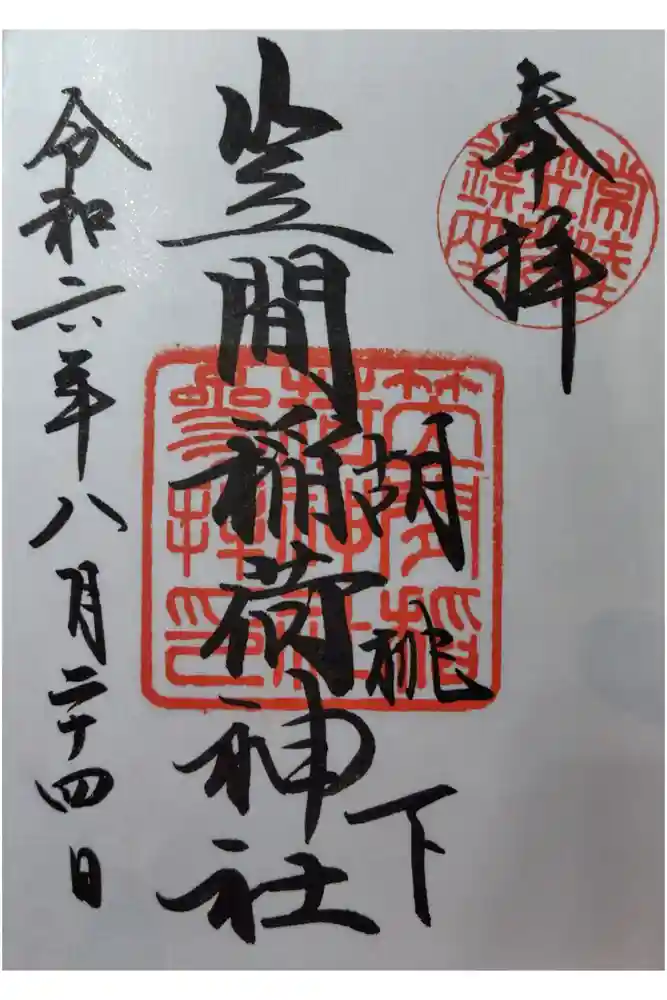 奉拝
常陸
笠間
鎮座
胡桃下
笠間稲荷神社
笠間稲
荷神社
参拝印
令和六年八月二十四日